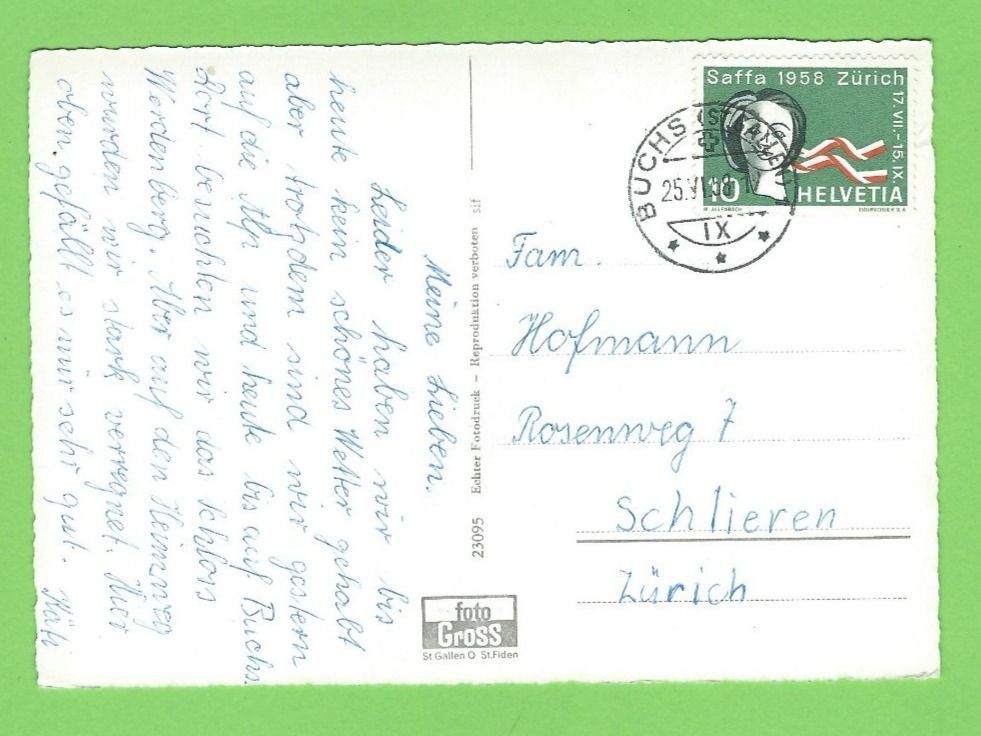 Meine Lieben.
Leider haben wir bis
heute kein schönes Wetter gehabt
aber trotzdem sind wir gestern
auf die Alp und heute bis auf Buchs.
Dort besuchten wir das Schloss
Werdenberg. Aber auf den Heimweg
wurden wir stark verregnet. Hier
oben gefällt es mir sehr gut. Käti
23095 Echter Fotodruck – Reproduktion verboten sif
foto
Gross
St Gallen O St.Fiden
Saffa 1958 Zürich
17.VII.-15.IX
10 HELVETIA
COURVOISIER S.A.
BUCHS (ST. GALLEN)
25.VI.58
IX
Fam.
Hofmann
Rosenweg 7
Schlieren
Zürich